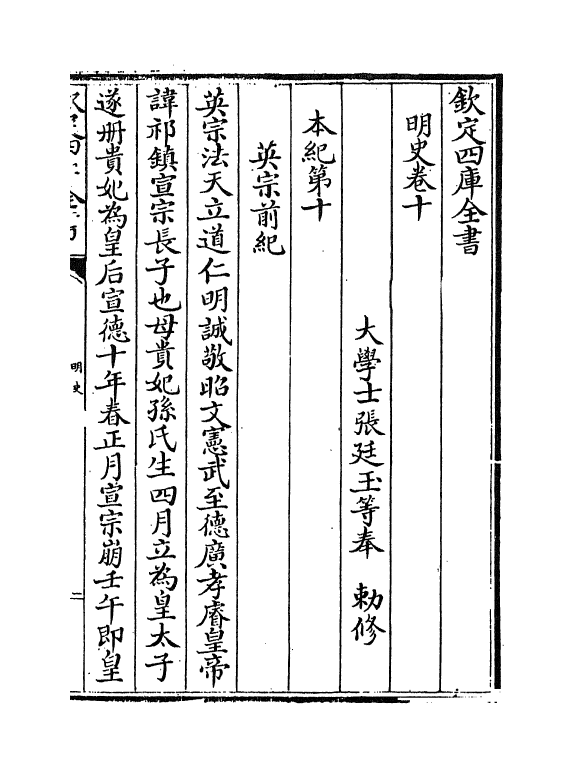 欽定四庫全書
明史卷十
大學士張廷玉等奉　勅修
本紀第十
英宗前紀
英宗法天立道仁明誠敬昭文憲武至德廣孝睿皇帝
諱祁鎮宣宗長子也母貴妃孫氏生四月立為皇太子
遂册貴妃為皇后宣德十年春正月宣宗崩壬午即皇
明史